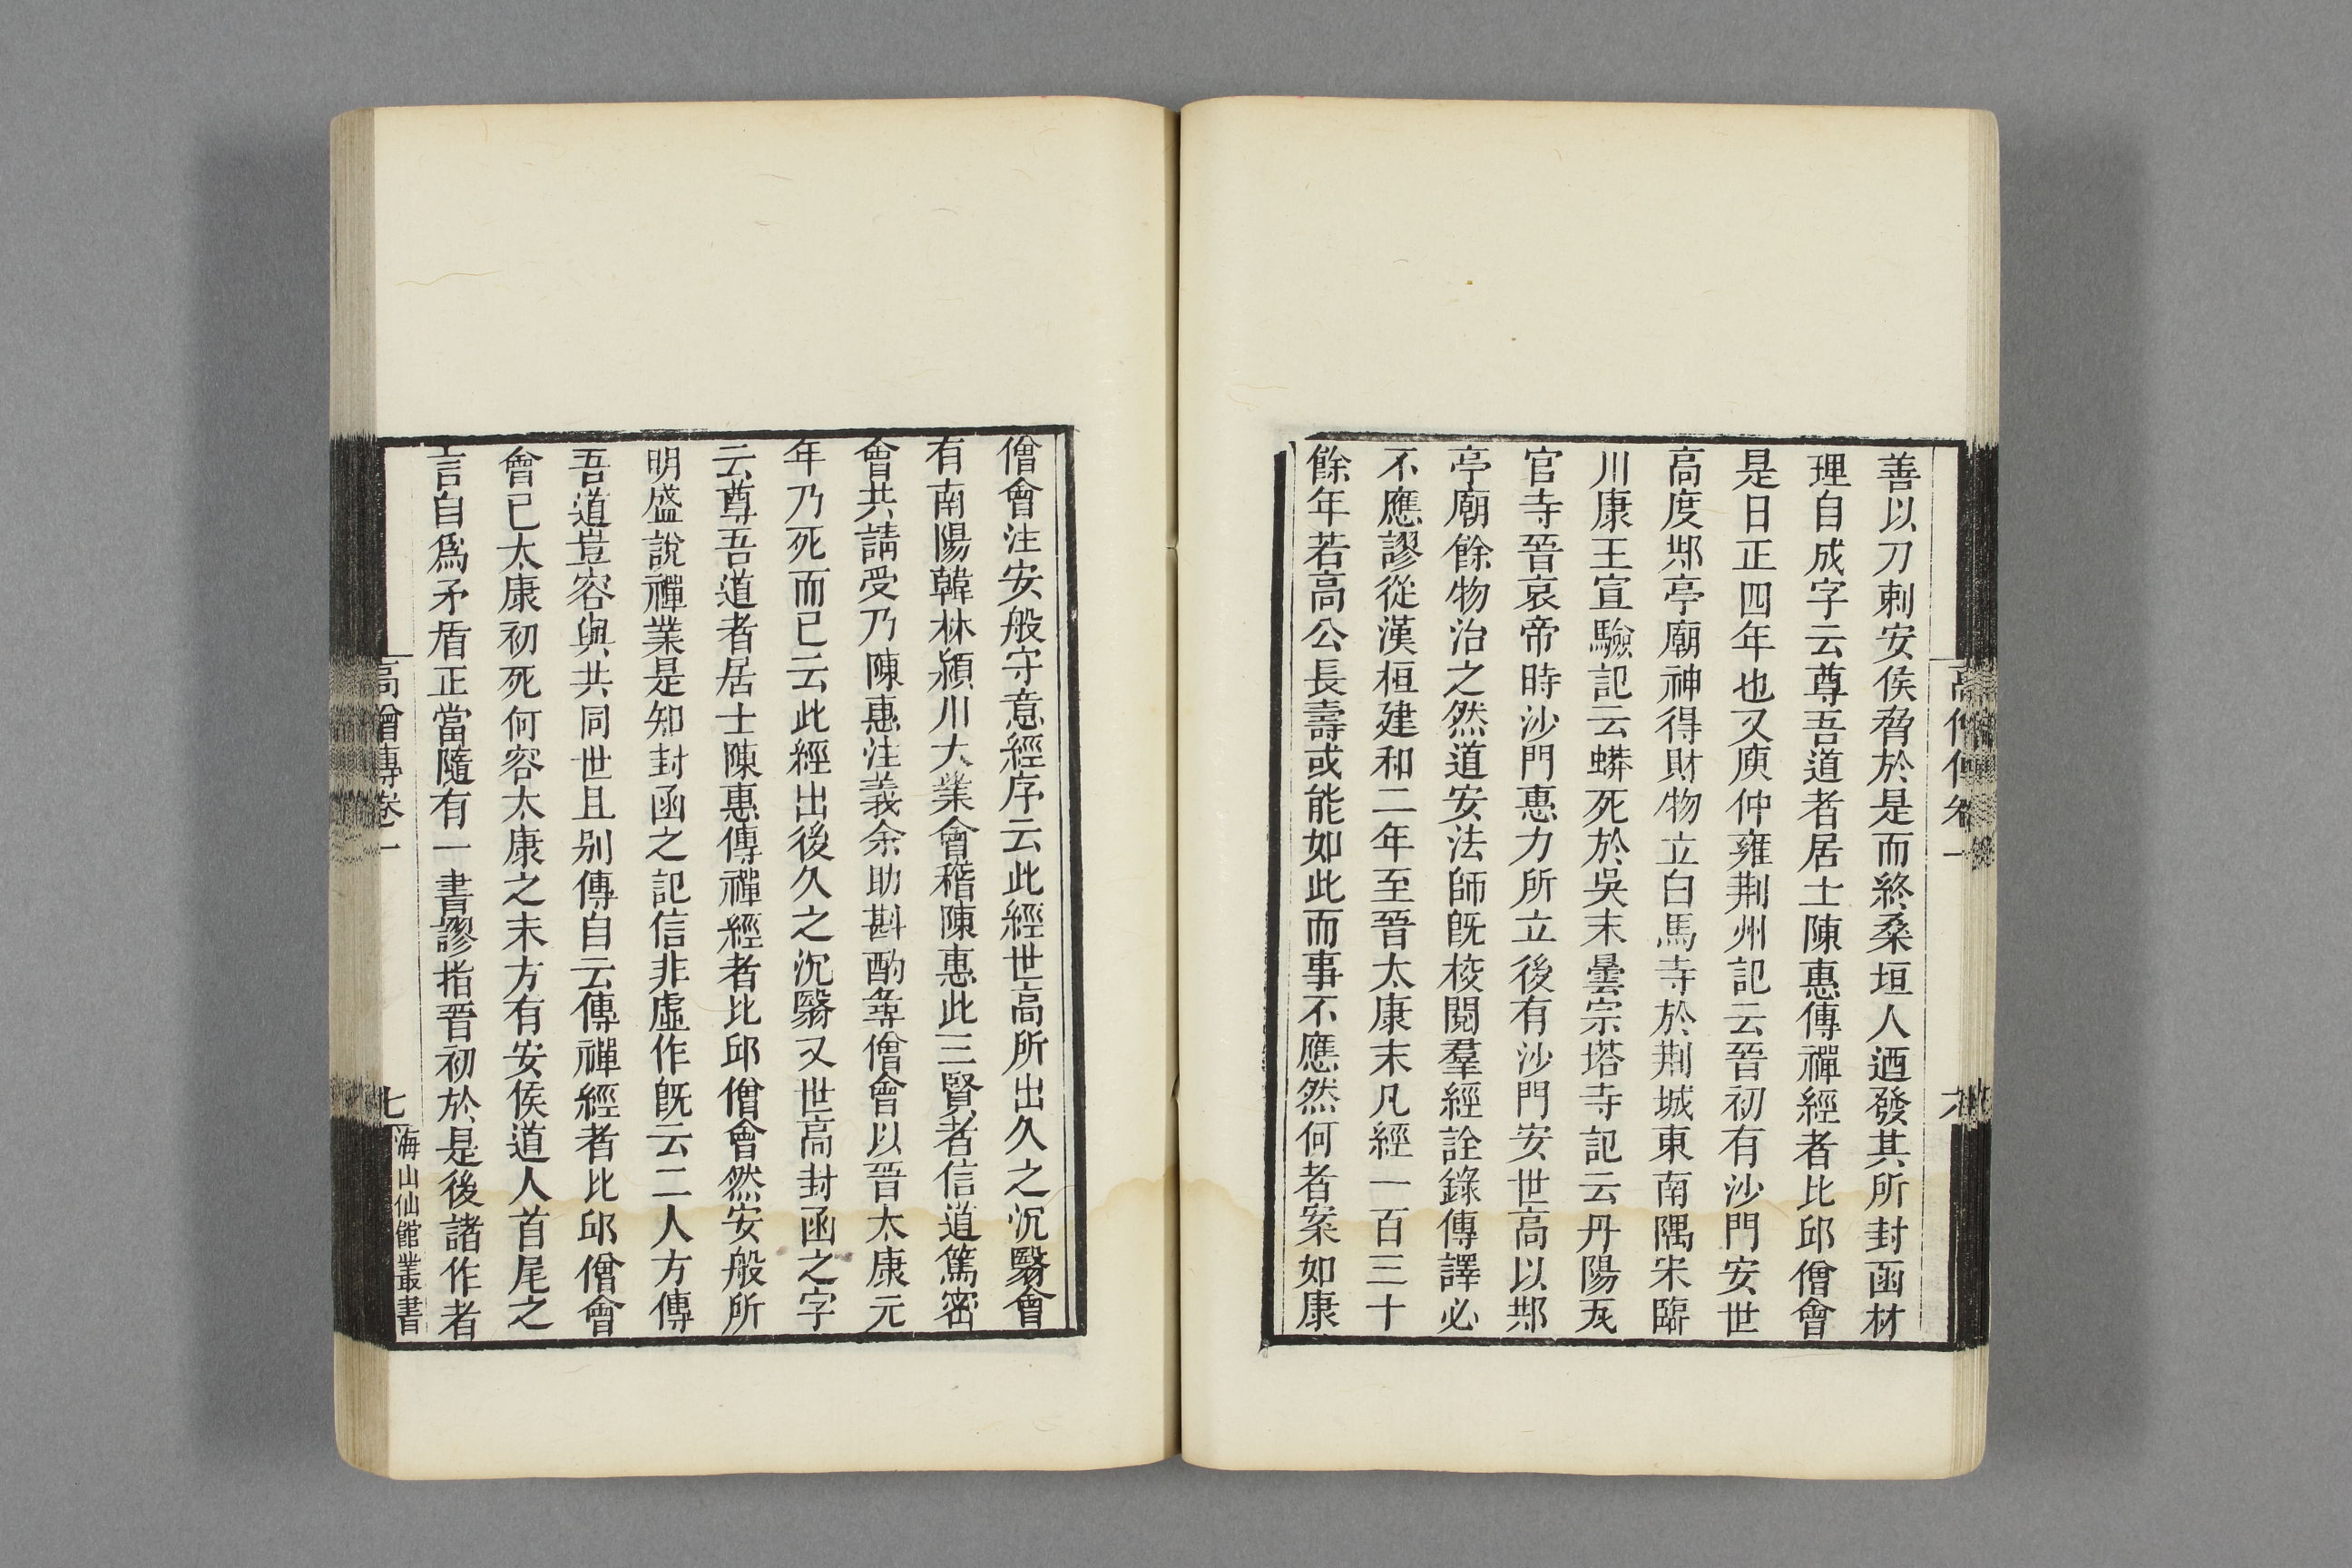 善以刀刺安侯脅於是而終桑垣人迺發其所封函材
理自成字云尊吾道者居士陳惠傳禪經者比邱僧會
是日正四年也又庾仲雍荆州記云晉初有沙門安世
高度䢼亭廟神得財物立白馬寺於荆城東南隅宋臨
川康王宣驗記云蟒死於吳末曇宗塔寺記云丹陽瓦
官寺晉哀帝時沙門惠力所立後有沙門安世高以䢼
亭廟餘物治之然道安法師旣校閱羣經詮錄傳譯必
不應謬從漢桓建和二年至晉太康末凡經一百三十
餘年若高公長壽或能如此而事不應然何者案如康
僧會注安般守意經序云此經世高所出久之沉翳會
有南陽韓林潁川大業會稽陳惠此三賢者信道篤密
會共請受乃陳惠注義余助斟酌尋僧會以晉太康元
年乃死而已云此經出後久之沉翳又世高封函之字
云尊吾道者居士陳惠傳禪經者比邱僧會然安般所
明盛說禪業是知封函之記信非虛作旣云二人方傳
吾道豈容與共同世且别傳自云傳禪經者比邱僧會
會已太康初死何容太康之末方有安侯道人首尾之
言自爲矛盾正當隨有一書謬指晉初於是後諸作者
高僧傳卷一
七
海山仙館叢書